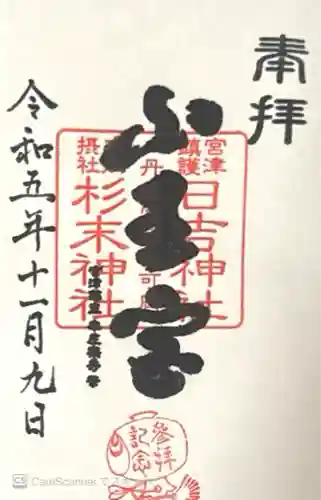 奉拝
宮津
鎮護
日吉神社
山王宮
丹
摂社
杉末神社
令和五年十一月九日
参拝
記念
CamScanner で